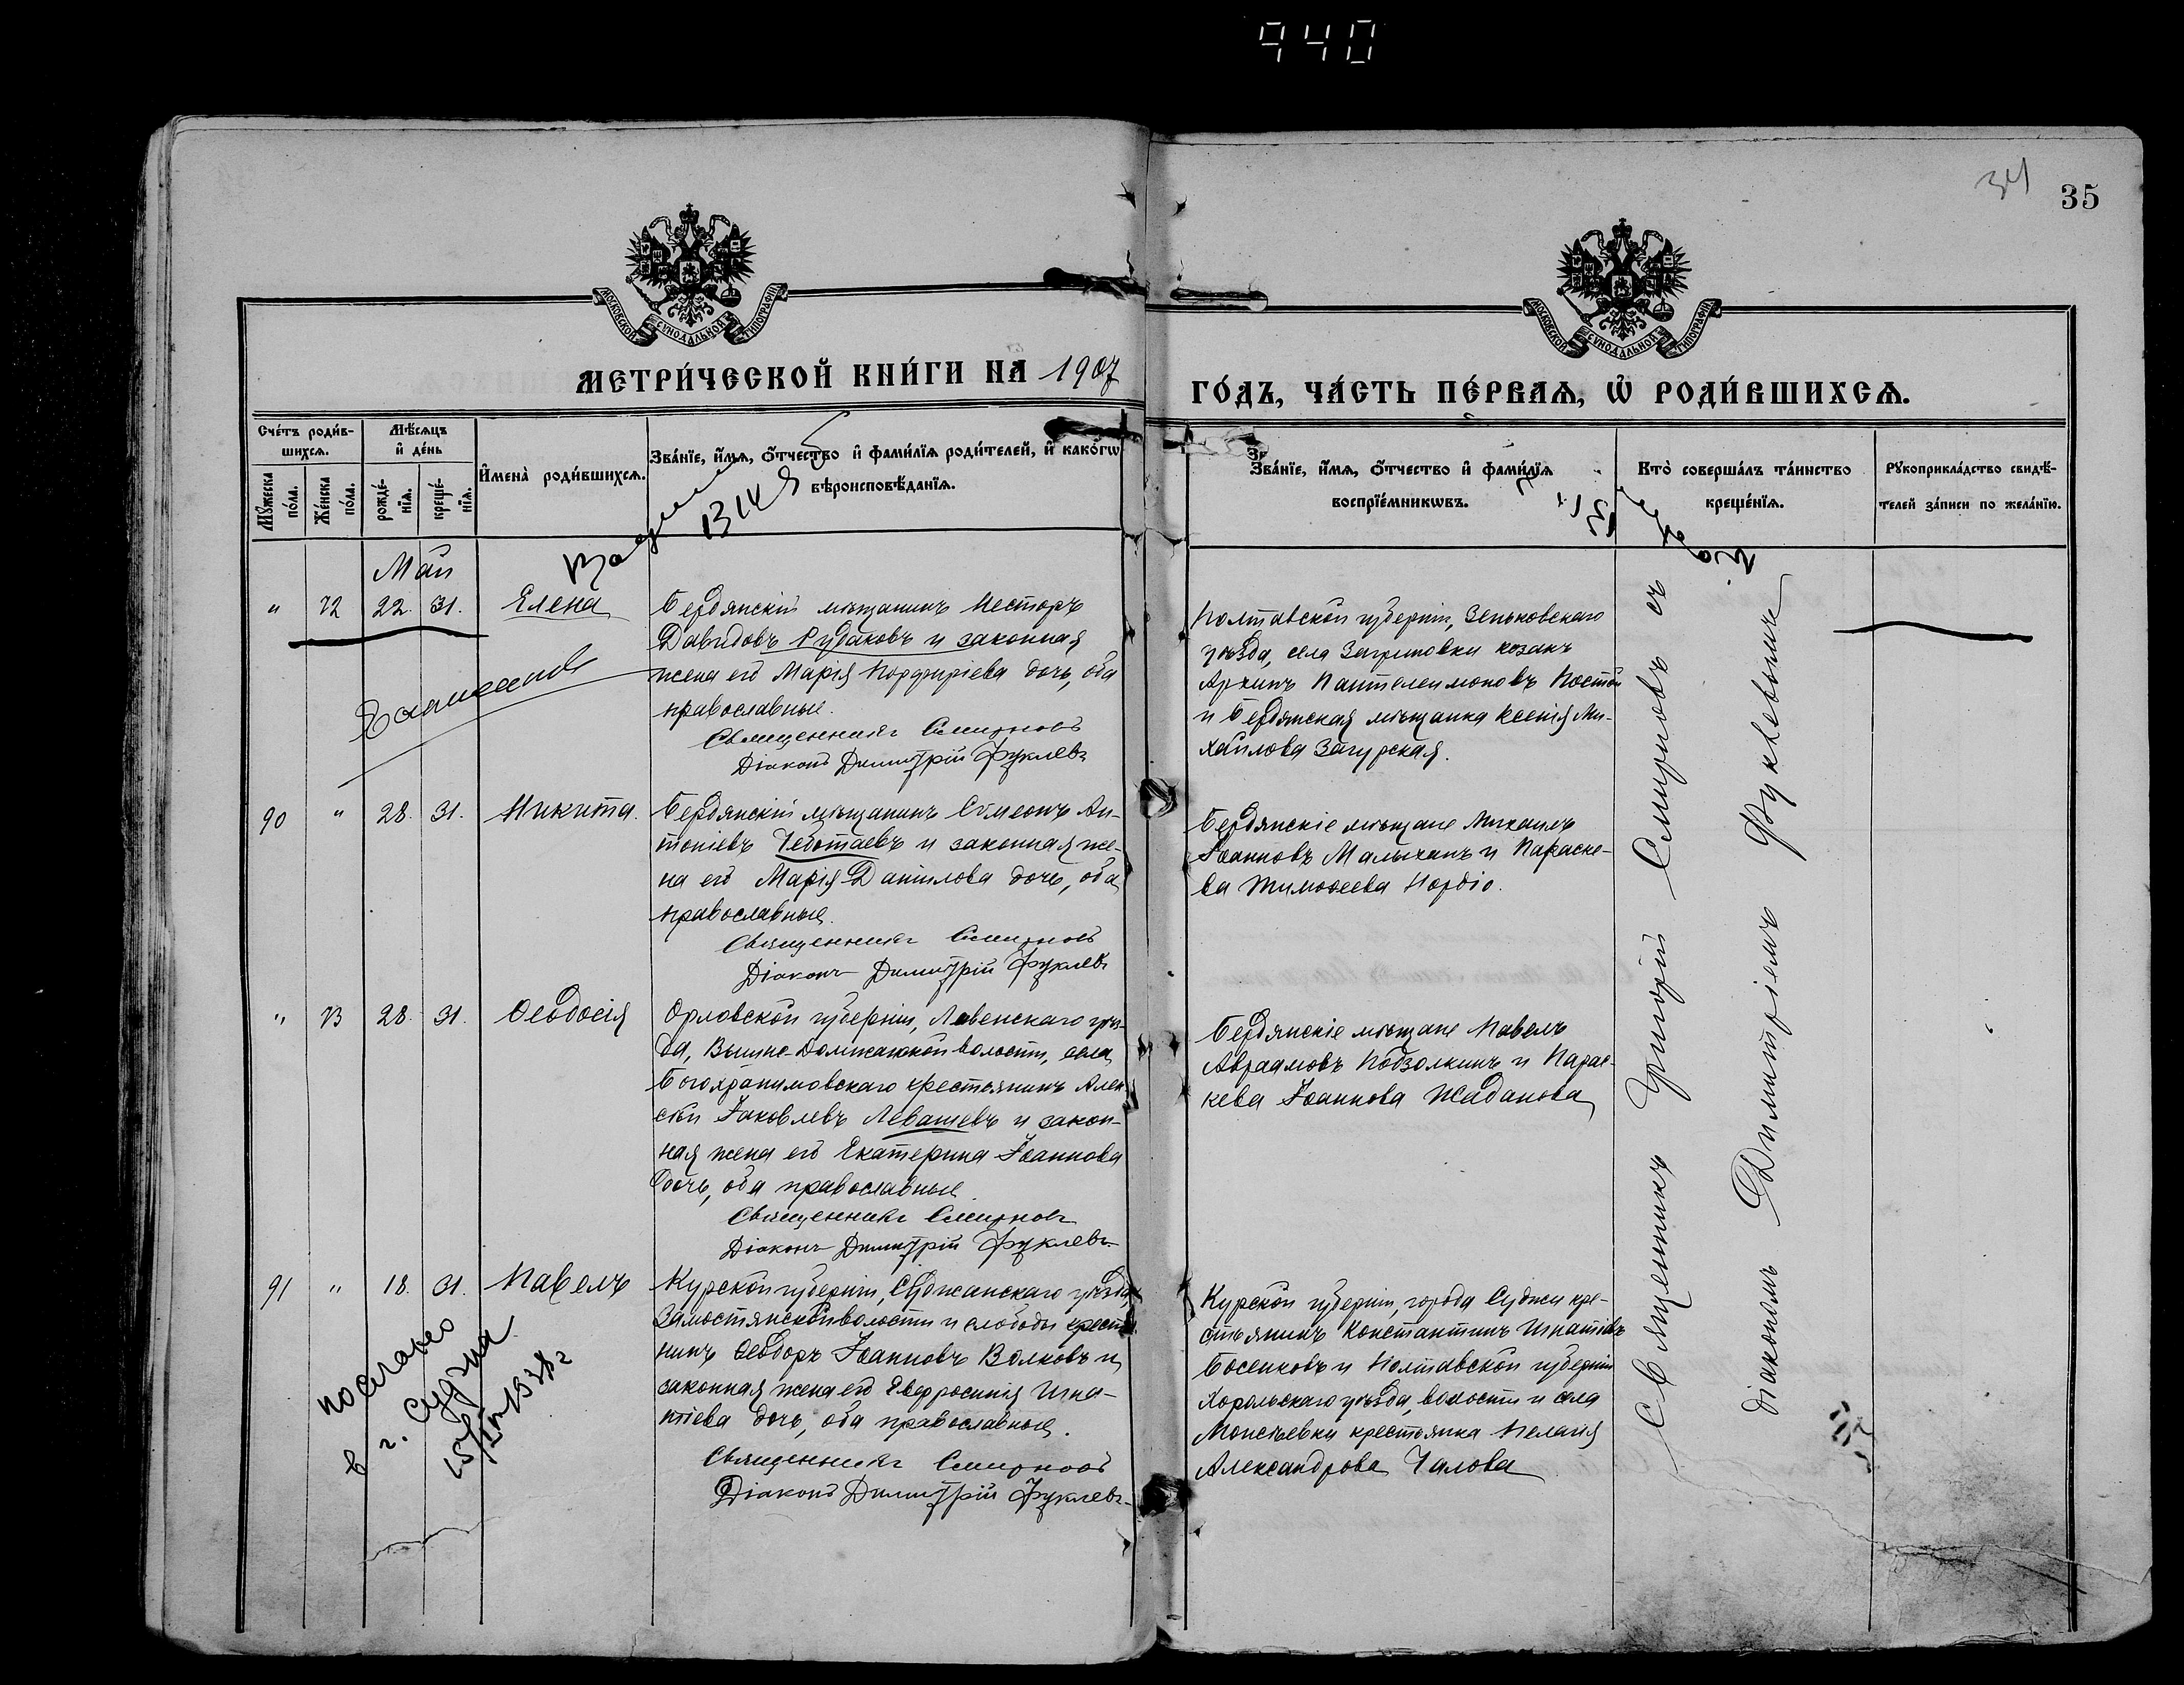 940
34
35
МОСКОВСКОЙ СУНОДАЛЬНОЙ ТИПОГРАФІИ
МОСКОВСКОЙ СУНОДАЛЬНОЙ ТИПОГРАФІИ
МЕТРИ́ЧЕСКОЙ КНИ́ГИ НА 1907
ГО́ДЪ, ЧА́СТЬ ПЕ́РВАѦ, Ѡ҆ РОДИ́ВШИХСѦ.
Сче́тъ роди́в-
шихсѧ.
Мѣ́сѧцъ
и҆ де́нь
Мꙋ́жеска
по́ла.
Же́нска
по́ла.
рожде́-
нїѧ.
креще́-
нїѧ.
И҆мена̀ роди́вшихсѧ.
Зва́нїе, и҆́мѧ, ѻ҆́тчество и҆ фами́лїѧ роди́телей, и҆ како́гѡ
вѣроисповѣ́данїѧ.
Зва́нїе, и҆́мѧ, ѻ҆́тчество и҆ фами́лїѧ
воспрїе́мникѡвъ.
Кто̀ соверша́лъ та́инство
креще́нїѧ.
Рꙋкоприкла́дство свидѣ́-
телей за́писи по жела́нїю.
Май
" 72 22. 31. Елена
Бердянскій мѣщанинъ Несторъ
Давидовъ Рубаковъ и законная
жена его Марія Порфиріева дочь, оба
православные.
Священникъ Смирновъ
Діаконъ Димитрій Фуклевъ
Полтавской губерніи, Зеньковскаго
уѣзда, села Загриповки козакъ
Архипъ Пантелеимоновъ
и Бердянская мѣщанка Ксенія Ми-
хайлова Загурская.
90 " 28. 31. Никита.
Бердянскій мѣщанинъ Сѵмеонъ Ан-
тоніевъ Чеботаевъ и законная же-
на его Марія Даніилова дочь, оба
православные.
Священникъ Смирновъ
Діаконъ Димитрій Фуклевъ
Бердянскіе мѣщане Михаилъ
Іоанновъ Малыханъ и Параске-
ва Тимоѳеева Нордіо.
" 73 28. 31. Ѳеодосія
Орловской губерніи, Ливенскаго уѣз-
да, Вышне-Должанской волости, села
Богохранимовскаго крестьянинъ Алек-
сѣй Іаковлевъ Левашевъ и закон-
ная жена его Екатерина Іоаннова
дочь, оба православные.
Священникъ Смирновъ
Діаконъ Димитрій Фуклевъ
Бердянскіе мѣщане Павелъ
Авраамовъ Подзолкинъ и Парас-
кева Іоаннова Жаданова
91 " 18. 31. Павелъ
Курской губерніи, Суджанскаго уѣзда,
Замостянской волости и слободы крестья-
нинъ Ѳеодоръ Іоанновъ Волковъ и
законная жена его Евфросинія Игна-
тіева дочь, оба православные.
Священникъ Смирновъ
Діаконъ Димитрій Фуклевъ
Курской губерніи, города Суджи кре-
стьянинъ Константинъ Игнатіевъ
Босенковъ и Полтавской губерніи
Хорольскаго уѣзда, волости и села
крестьянка Пелагія
Александрова Чалова
послано
в г. Суджа
Священникъ Григорій Смирновъ съ
діакономъ Димитріемъ Фуклевымъ